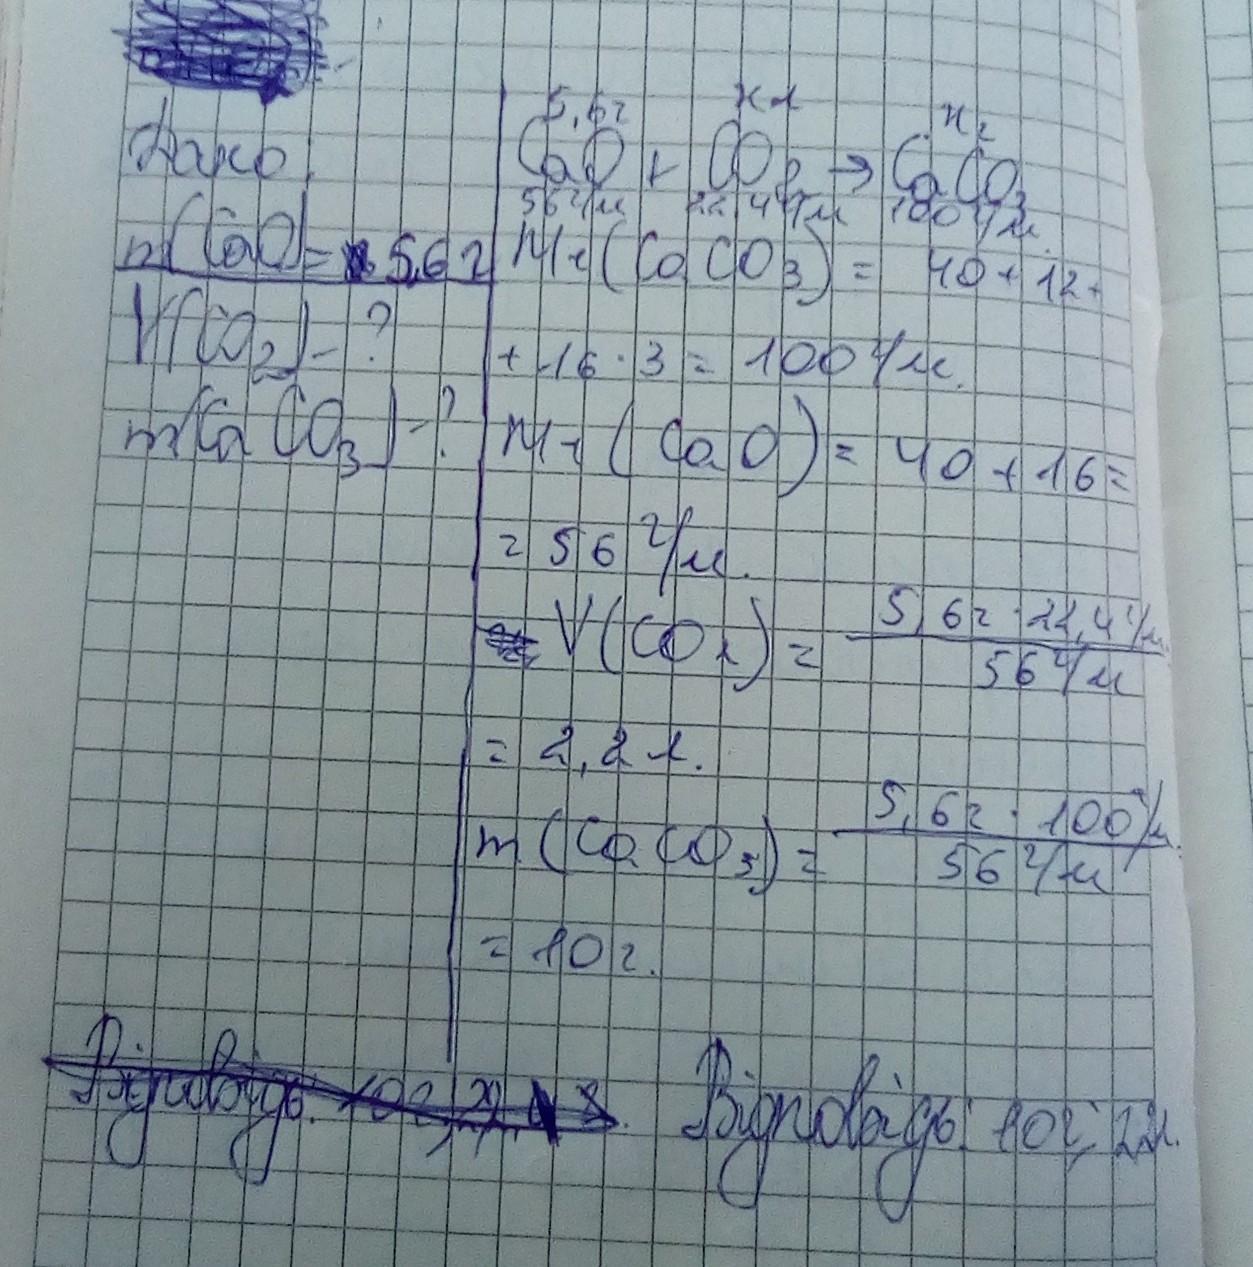 Дано
m(CaO) = 5,6г
V(CO2) - ?
m(CaCO3) - ?
5,6г xл x г
CaO + CO2 → CaCO3
56 г/м 22,4 л/м 100 г/м.
Mr (CaCO3) = 40 + 12 +
+ 16 · 3 = 100 г/м.
Mr (CaO) = 40 + 16 =
= 56 г/м.
V(CO2) = 5,6г · 22,4 л/м / 56 г/м
= 2,2 л.
m (CaCO3) = 5,6г · 100 г/м. / 56 г/м
= 10 г.
Відповідь: 10г, 2,2л.